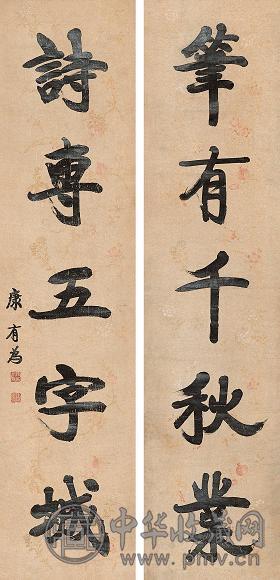 筆有千秋業
詩專五字城
康有為
中华收藏网
www.pmv.cn